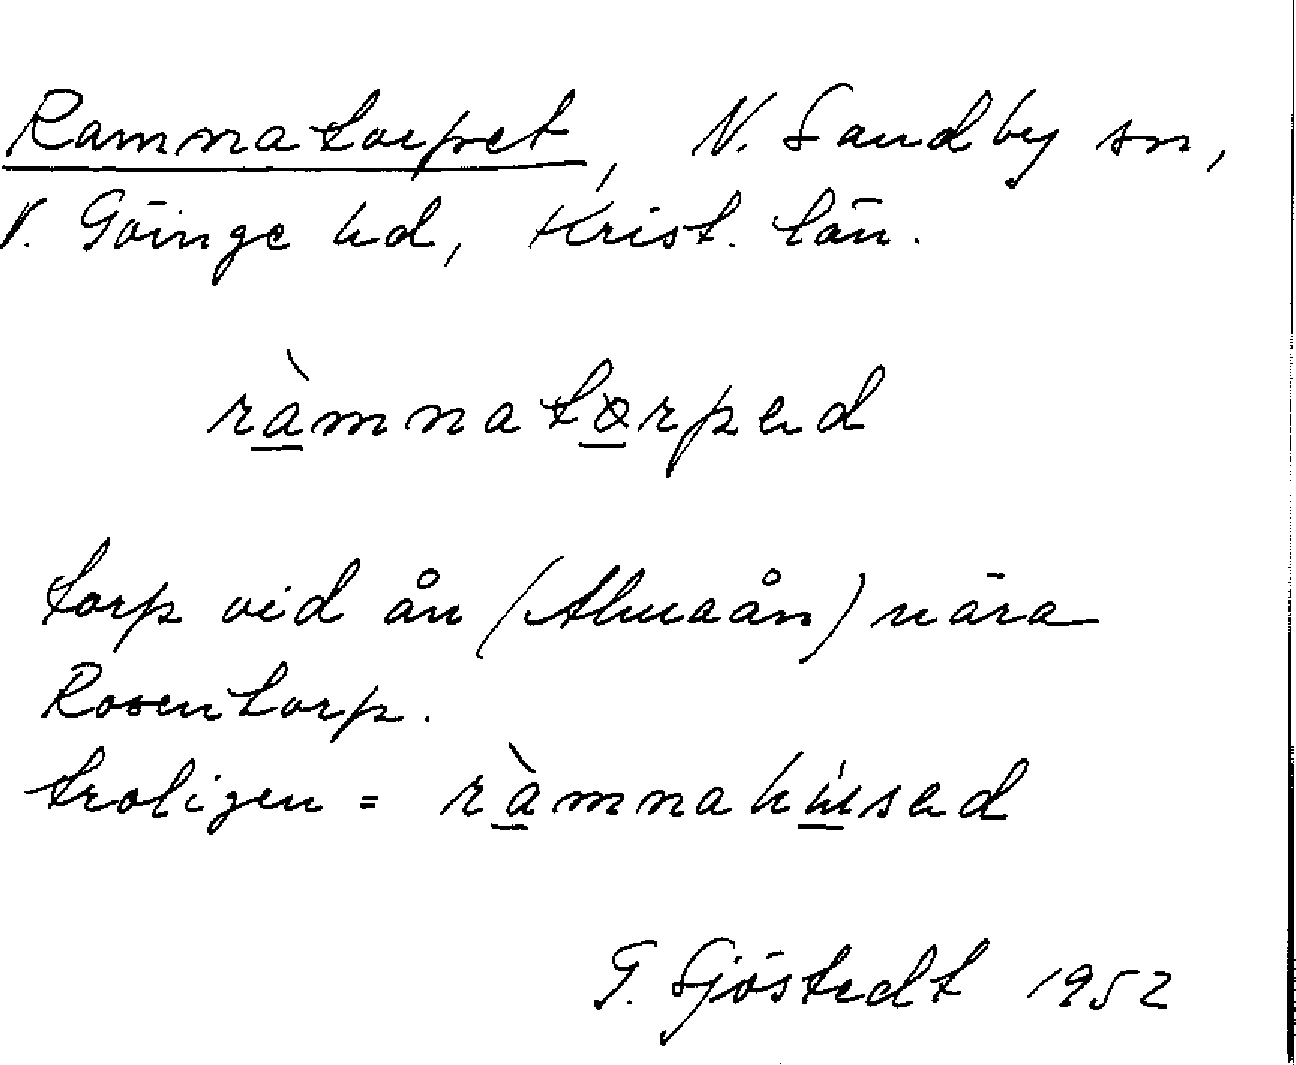 Ramnatorpet, N. Sandby sn,
V. Göinge hd, Krist. län.
ràmnatørpəd
torp vid ån (Almaån) nära
Rosentorp.
troligen = ràmnahúsəd
G. Sjöstedt 1952